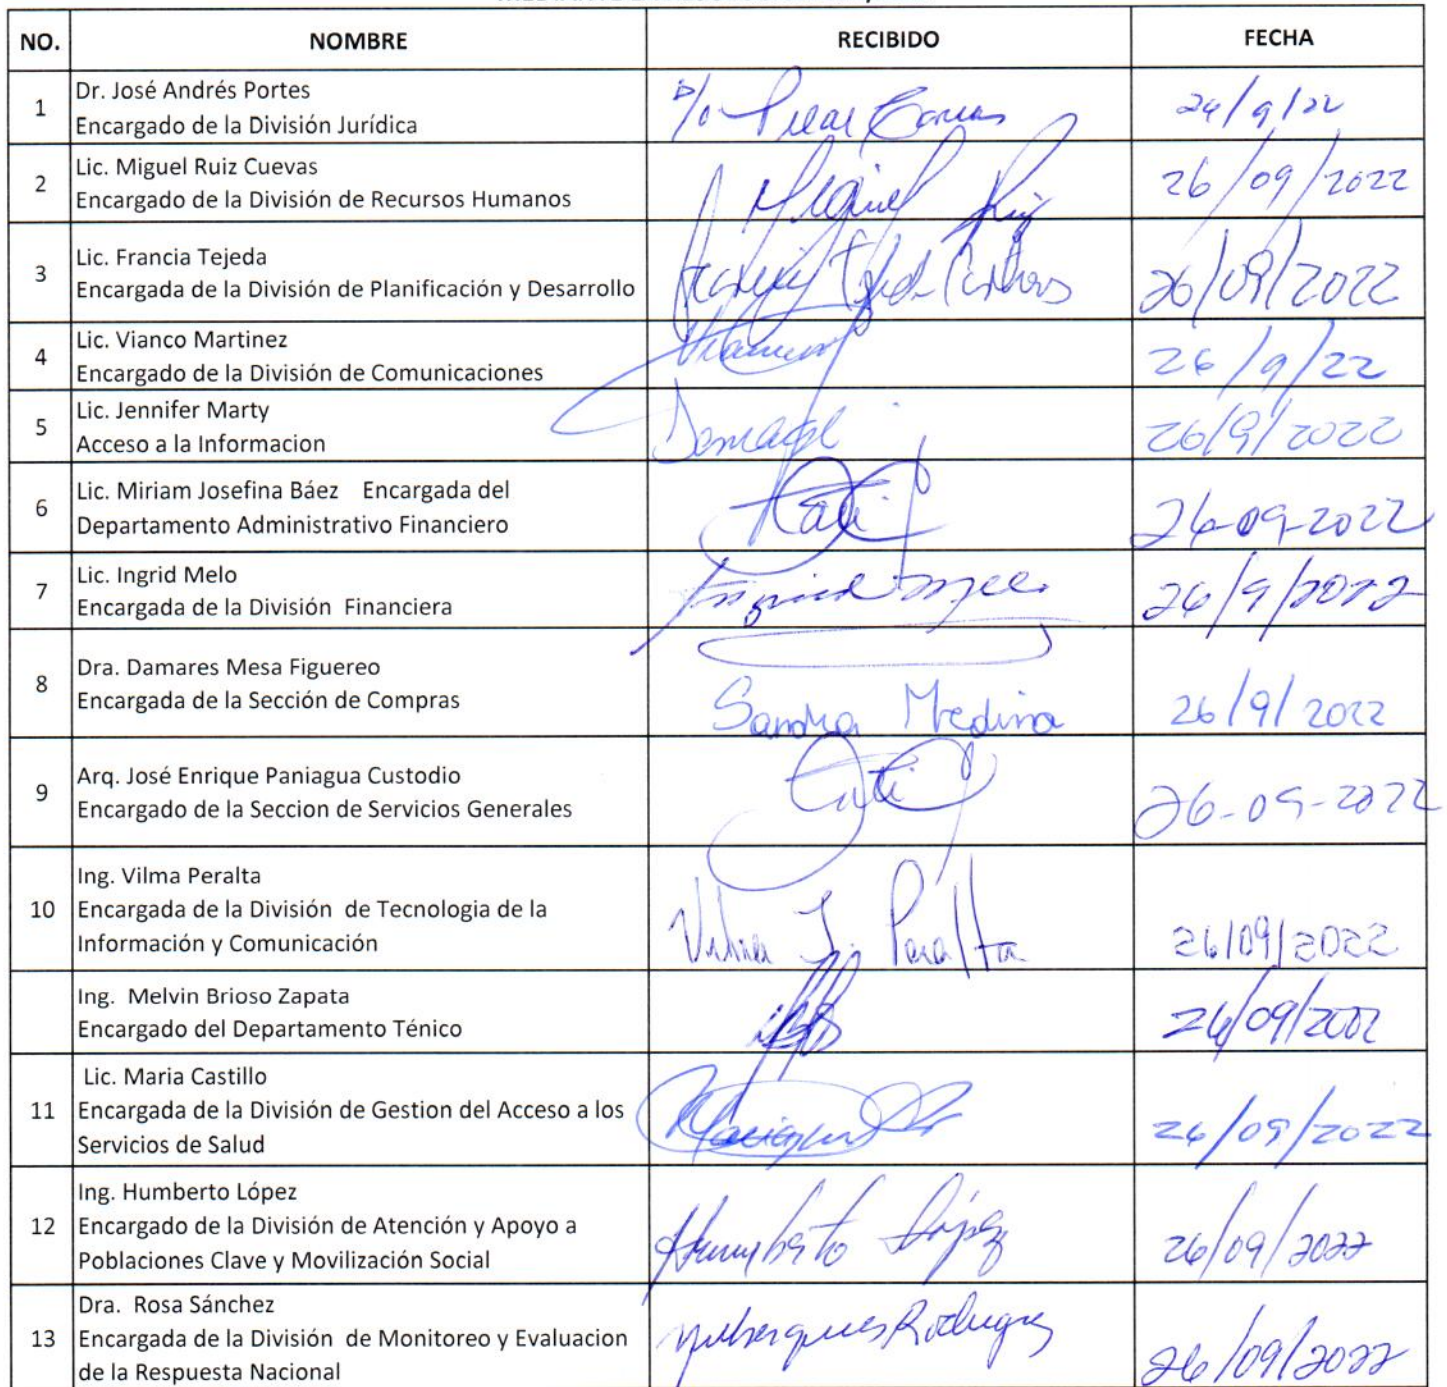 NO. NOMBRE RECIBIDO FECHA
1 Dr. José Andrés Portes
Encargado de la División Jurídica
P/O Pilar 26/9/22
2 Lic. Miguel Ruiz Cuevas
Encargado de la División de Recursos Humanos
Miguel Ruiz 26/09/2022
3 Lic. Francia Tejeda
Encargada de la División de Planificación y Desarrollo
26/09/2022
4 Lic. Vianco Martinez
Encargado de la División de Comunicaciones
26/9/22
5 Lic. Jennifer Marty
Acceso a la Informacion
26/9/2022
6 Lic. Miriam Josefina Báez Encargada del
Departamento Administrativo Financiero
26-09-2022
7 Lic. Ingrid Melo
Encargada de la División Financiera
Ingrid Melo 26/9/2022
8 Dra. Damares Mesa Figuereo
Encargada de la Sección de Compras
Sandra Medina 26/9/2022
9 Arq. José Enrique Paniagua Custodio
Encargado de la Seccion de Servicios Generales
26-09-2022
10 Ing. Vilma Peralta
Encargada de la División de Tecnologia de la
Información y Comunicación
Vilma J. Peralta 26/09/2022
Ing. Melvin Brioso Zapata
Encargado del Departamento Ténico
26/09/2022
11 Lic. Maria Castillo
Encargada de la División de Gestion del Acceso a los
Servicios de Salud
26/09/2022
12 Ing. Humberto López
Encargado de la División de Atención y Apoyo a
Poblaciones Clave y Movilización Social
Humberto López 26/09/2022
13 Dra. Rosa Sánchez
Encargada de la División de Monitoreo y Evaluacion
de la Respuesta Nacional
26/09/2022